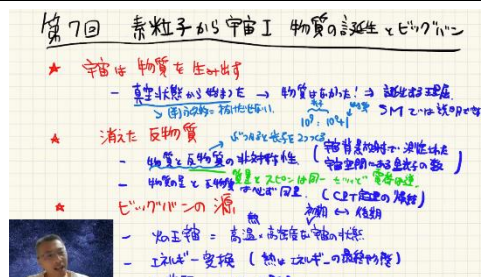 第7回 素粒子から宇宙I 物質の誕生とビッグバン
★ 宇宙は物質を生み出す
- 真空状態から始まった → 物質はなかった! → 誕生する理屈
SMでは説明できな
10⁹ : 10⁹+1
★ 消えた反物質
ぶつかると光子を2つつくる
- 物質と反物質の非対称性 (宇宙背景放射で
宇宙空間にある光子の数)
質量とスピンは同一 電荷は逆
- 物質の量と反物質は必ず同量 (CPT定理の帰結)
★ ビッグバンの源
熱 初期 ↔ 後期
- 火の玉宇宙 = 高温・高密度な宇宙の状態
- エネルギー変換 (熱はエネルギーの最終形態)